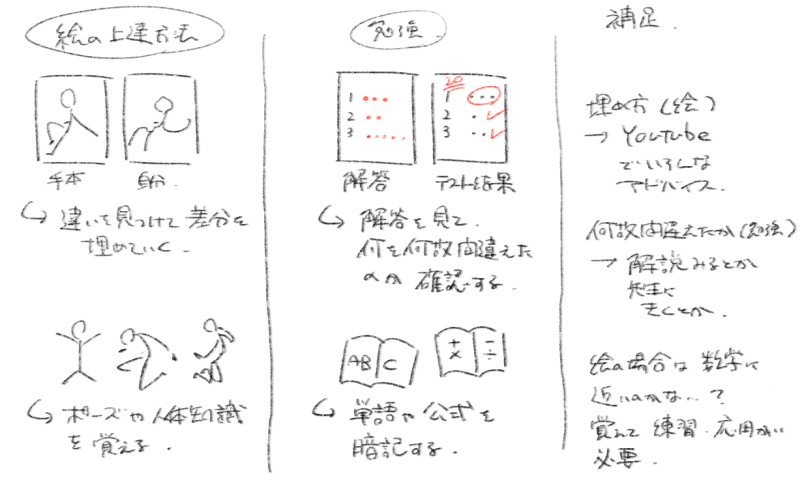 絵の上達方法
手本
自分.
↪ 違いを見つけて差分を
埋めていく.
↪ ポーズや人体知識
を覚える.
勉強.
1
2
3
20
1
2
3
解答
テスト結果
↪ 解答を見て.
何を何故間違えた
のか 確認する.
AB C
+ ×
- ÷
↪ 単語や公式を
暗記する.
補足.
埋め方(絵)
→ Youtube
でいろんな
アドバイス.
何故間違えたか(勉強)
→ 解説みるとか
先生に
きくとか.
絵の場合は 数学に
近いのかな..?
覚えて 練習.応用がい
必要.